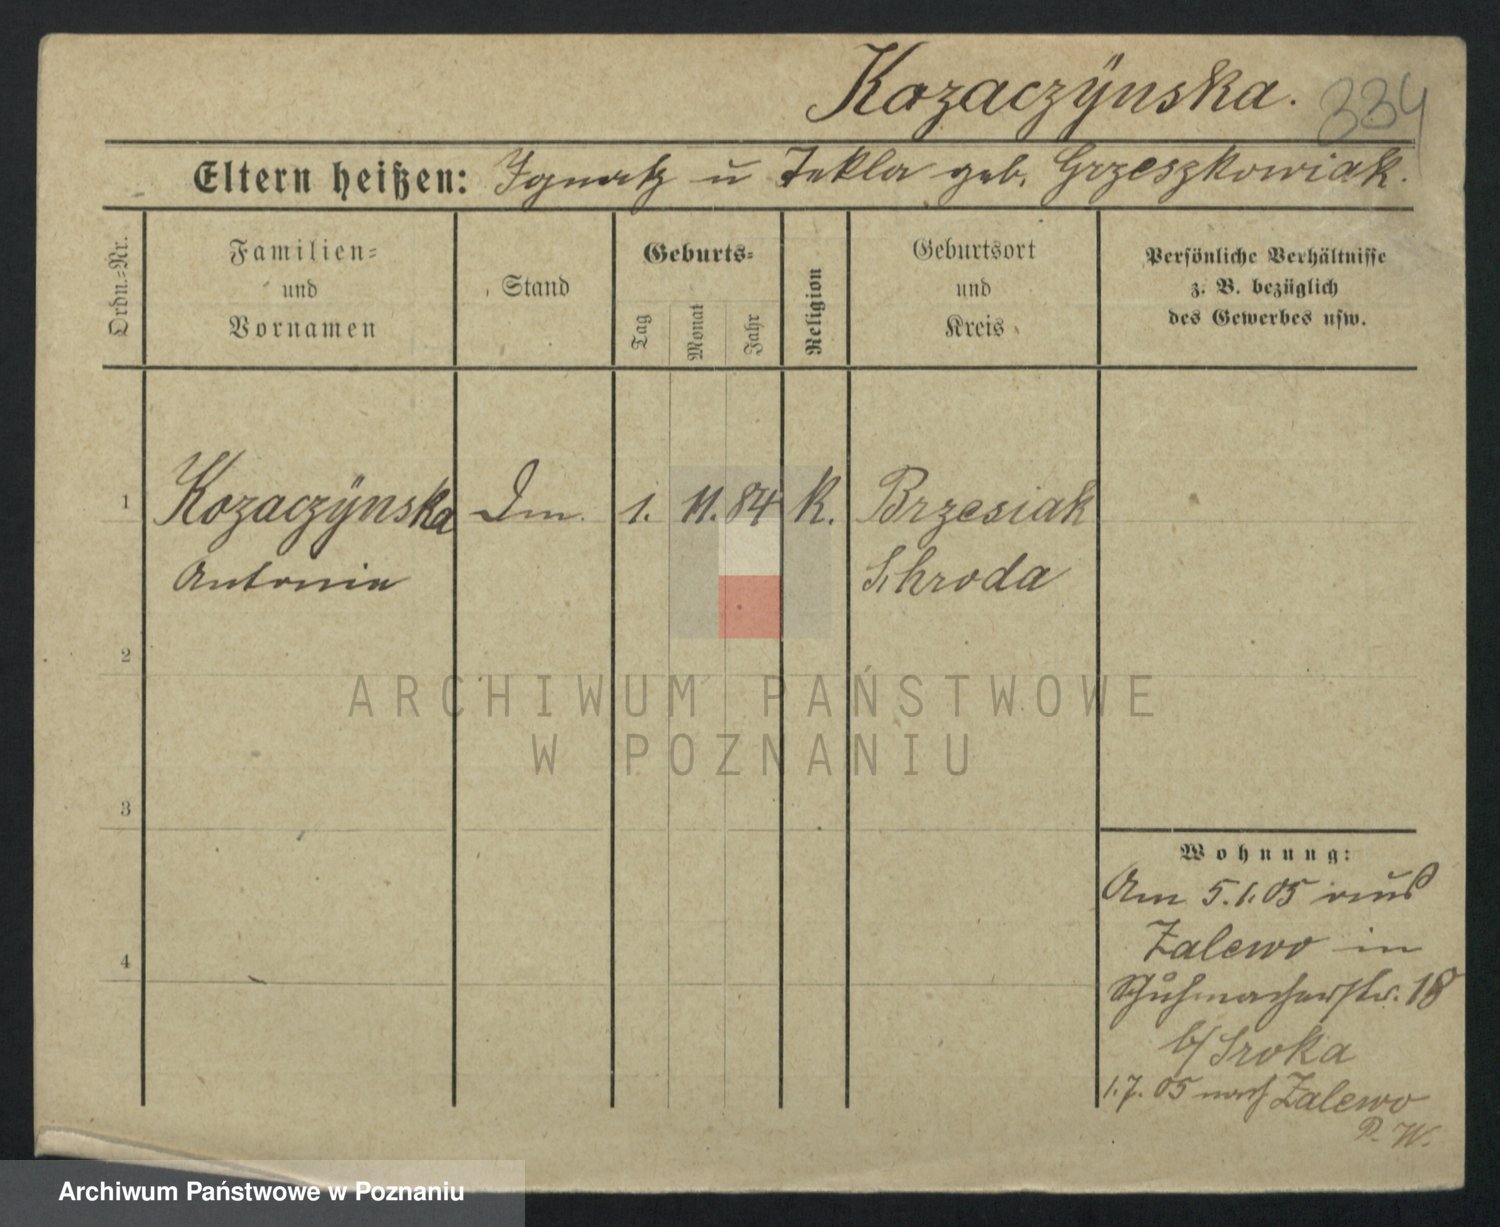 Kozaczÿnska.
334
Eltern heißen: Ignatz u Tekla geb. Grzeszkowiak.
Ordn.-Nr.
Familien- und Vornamen
Stand
Geburts-
Tag
Monat
Jahr
Religion
Geburtsort und Kreis
Persönliche Verhältnisse
z. B. bezüglich
des Gewerbes usw.
1 Kozaczÿnska Dm. 1. 11. 84 K. Brzesiak
Antonie Schroda
2
ARCHIWUM PAŃSTWOWE
W POZNANIU
3
Wohnung:
Am 5.1.05 aus
Zalewo in
4
Schuhmacherstr. 18
b/ Sroka
1.7.05 nach Zalewo
P. W.
Archiwum Państwowe w Poznaniu